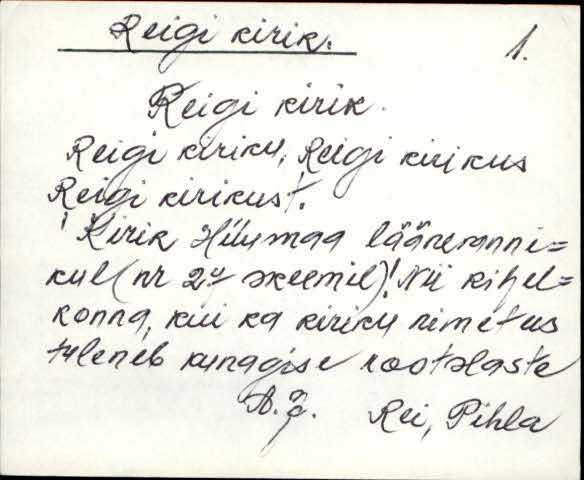 Reigi kirik.
1.
Reigi kirik.
Reigi kiriku, Reigi kirikus
Reigi kirikust.
! Kirik Hiiumaa lääneranni=
kul (nr 27 skeemil)! Nii kihel=
konna, kui ka kiriku nimetus
tuleneb kunagise rootslaste
A. J. Rei, Pihla